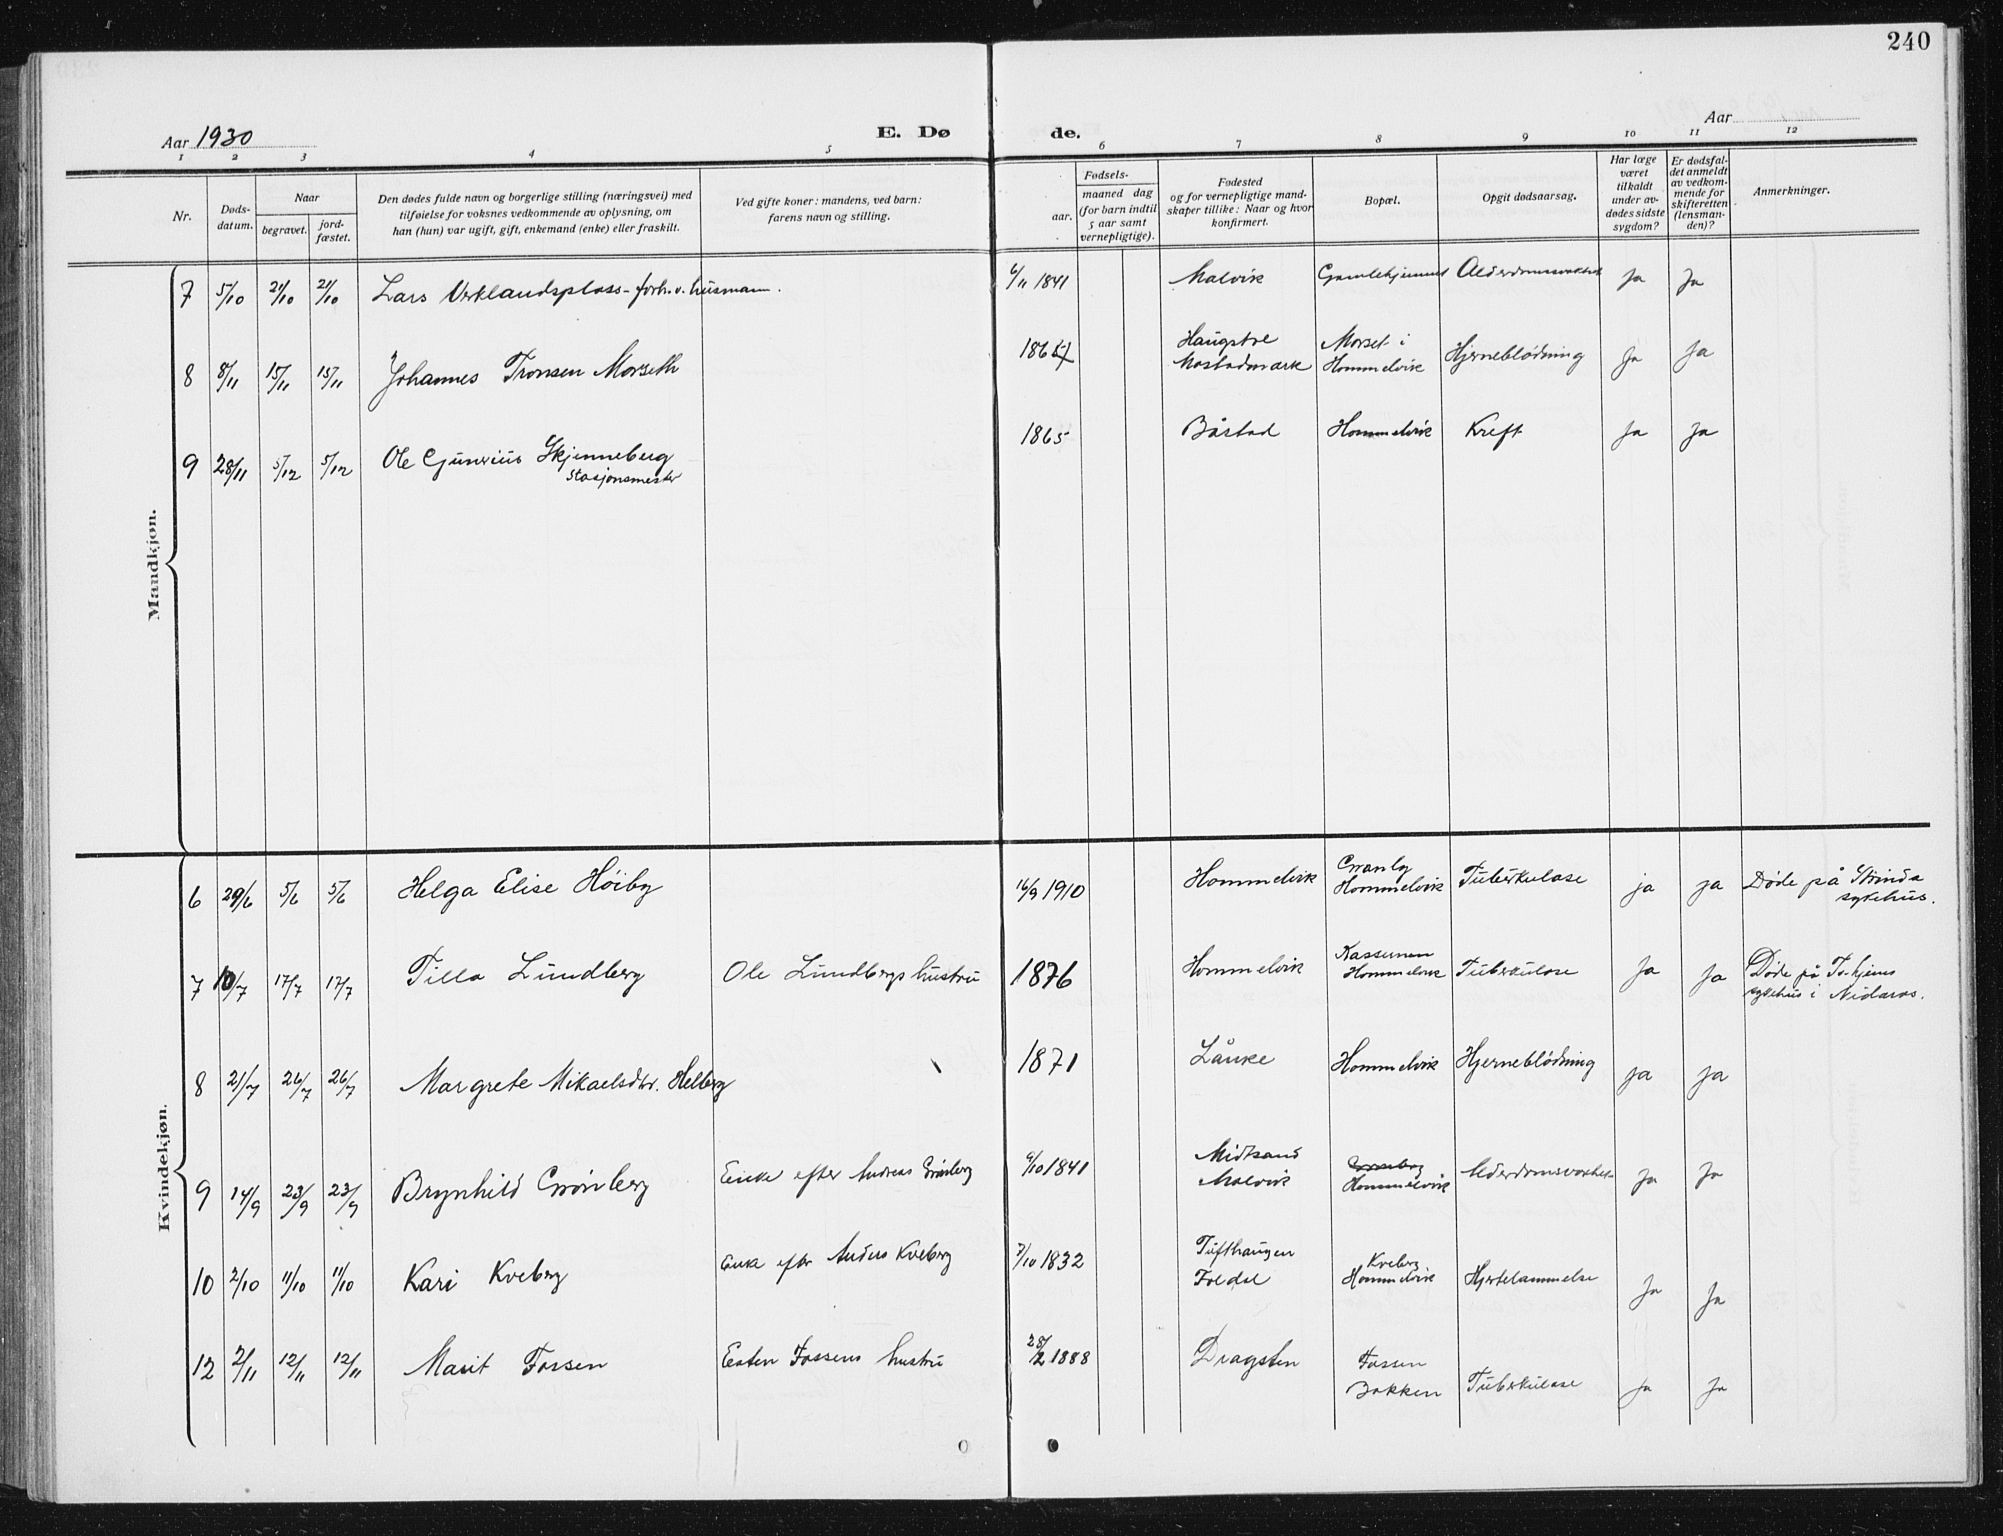 240
Aar 1930 E. Dø de. Aar
1 2 3 4 5 6 7 8 9 10 11 12
Nr.
Døds-
datum.
Naar
begravet.
jord-
fæstet.
Den dødes fulde navn og borgerlige stilling (næringsvei) med
tilføielse for voksnes vedkommende av oplysning, om
han (hun) var ugift, gift, enkemand (enke) eller fraskilt.
Ved gifte koner: mandens, ved barn:
farens navn og stilling.
Fødsels-
aar.
maaned dag
(for barn indtil
5 aar samt
vernepligtige).
Fødested
og for vernepligtige mand-
skaper tillike: Naar og hvor
konfirmert.
Bopæl.
Opgit dødsaarsag.
Har læge
været
tilkaldt
under av-
dødes sidste
sygdom?
Er dødsfal-
det anmeldt
av vedkom-
mende for
skifteretten
(lensman-
den)?
Anmerkninger.
Mandkjøn.
7 5/10 21/10 21/10 Lars Verklandsplass - forh.v. husmann. 6/11 1841 Malvik Gamlehjemmet Alderdomssvakhet Ja Ja
8 8/11 15/11 15/11 Johannes Tronsen Morseth Haugstre Mostadmark Morset i Hommelvik Hjerneblödning Ja Ja
9 28/11 5/12 5/12 Ole Gunerius Skjenneberg 1865 Båstad Hommelvik Kreft Ja Ja
Stasjonsmester
Kvindekjøn.
6 29/6 5/6 5/6 Helga Elise Höiby 16/9 1910 Hommelvik Granby Hommelvik Tuberkulose ja ja Döde på Strinda
sykehus.
7 10/7 17/7 17/7 Tilla Lundberg Ole Lundbergs hustru 1876 Hommelvik Kassernen Hommelvik Tuberkulose Ja Ja Döde på
sykehus i Nidaros.
8 21/7 26/7 26/7 Margrete Mikaelsdtr. Helberg 1871 Lånke Hommelvik Hjerneblödning ja ja
9 14/9 23/9 23/9 Brynhild Grönberg Enke efter Andreas Grönberg 6/10 1841 Midtsand Malvik Hommelvik Alderdomssvakhet Ja Ja
10 2/10 11/10 11/10 Kari Kveberg Enke efter Anders Kveberg 7/10 1832 Tufthaugen Foldal Kveberg Hommelvik Hjertelammelse Ja Ja
12 2/11 12/11 12/11 Marit Fossen Esten Fossens hustru 28/2 1888 Dragsten Fossen Bakken Tuberkulose Ja Ja